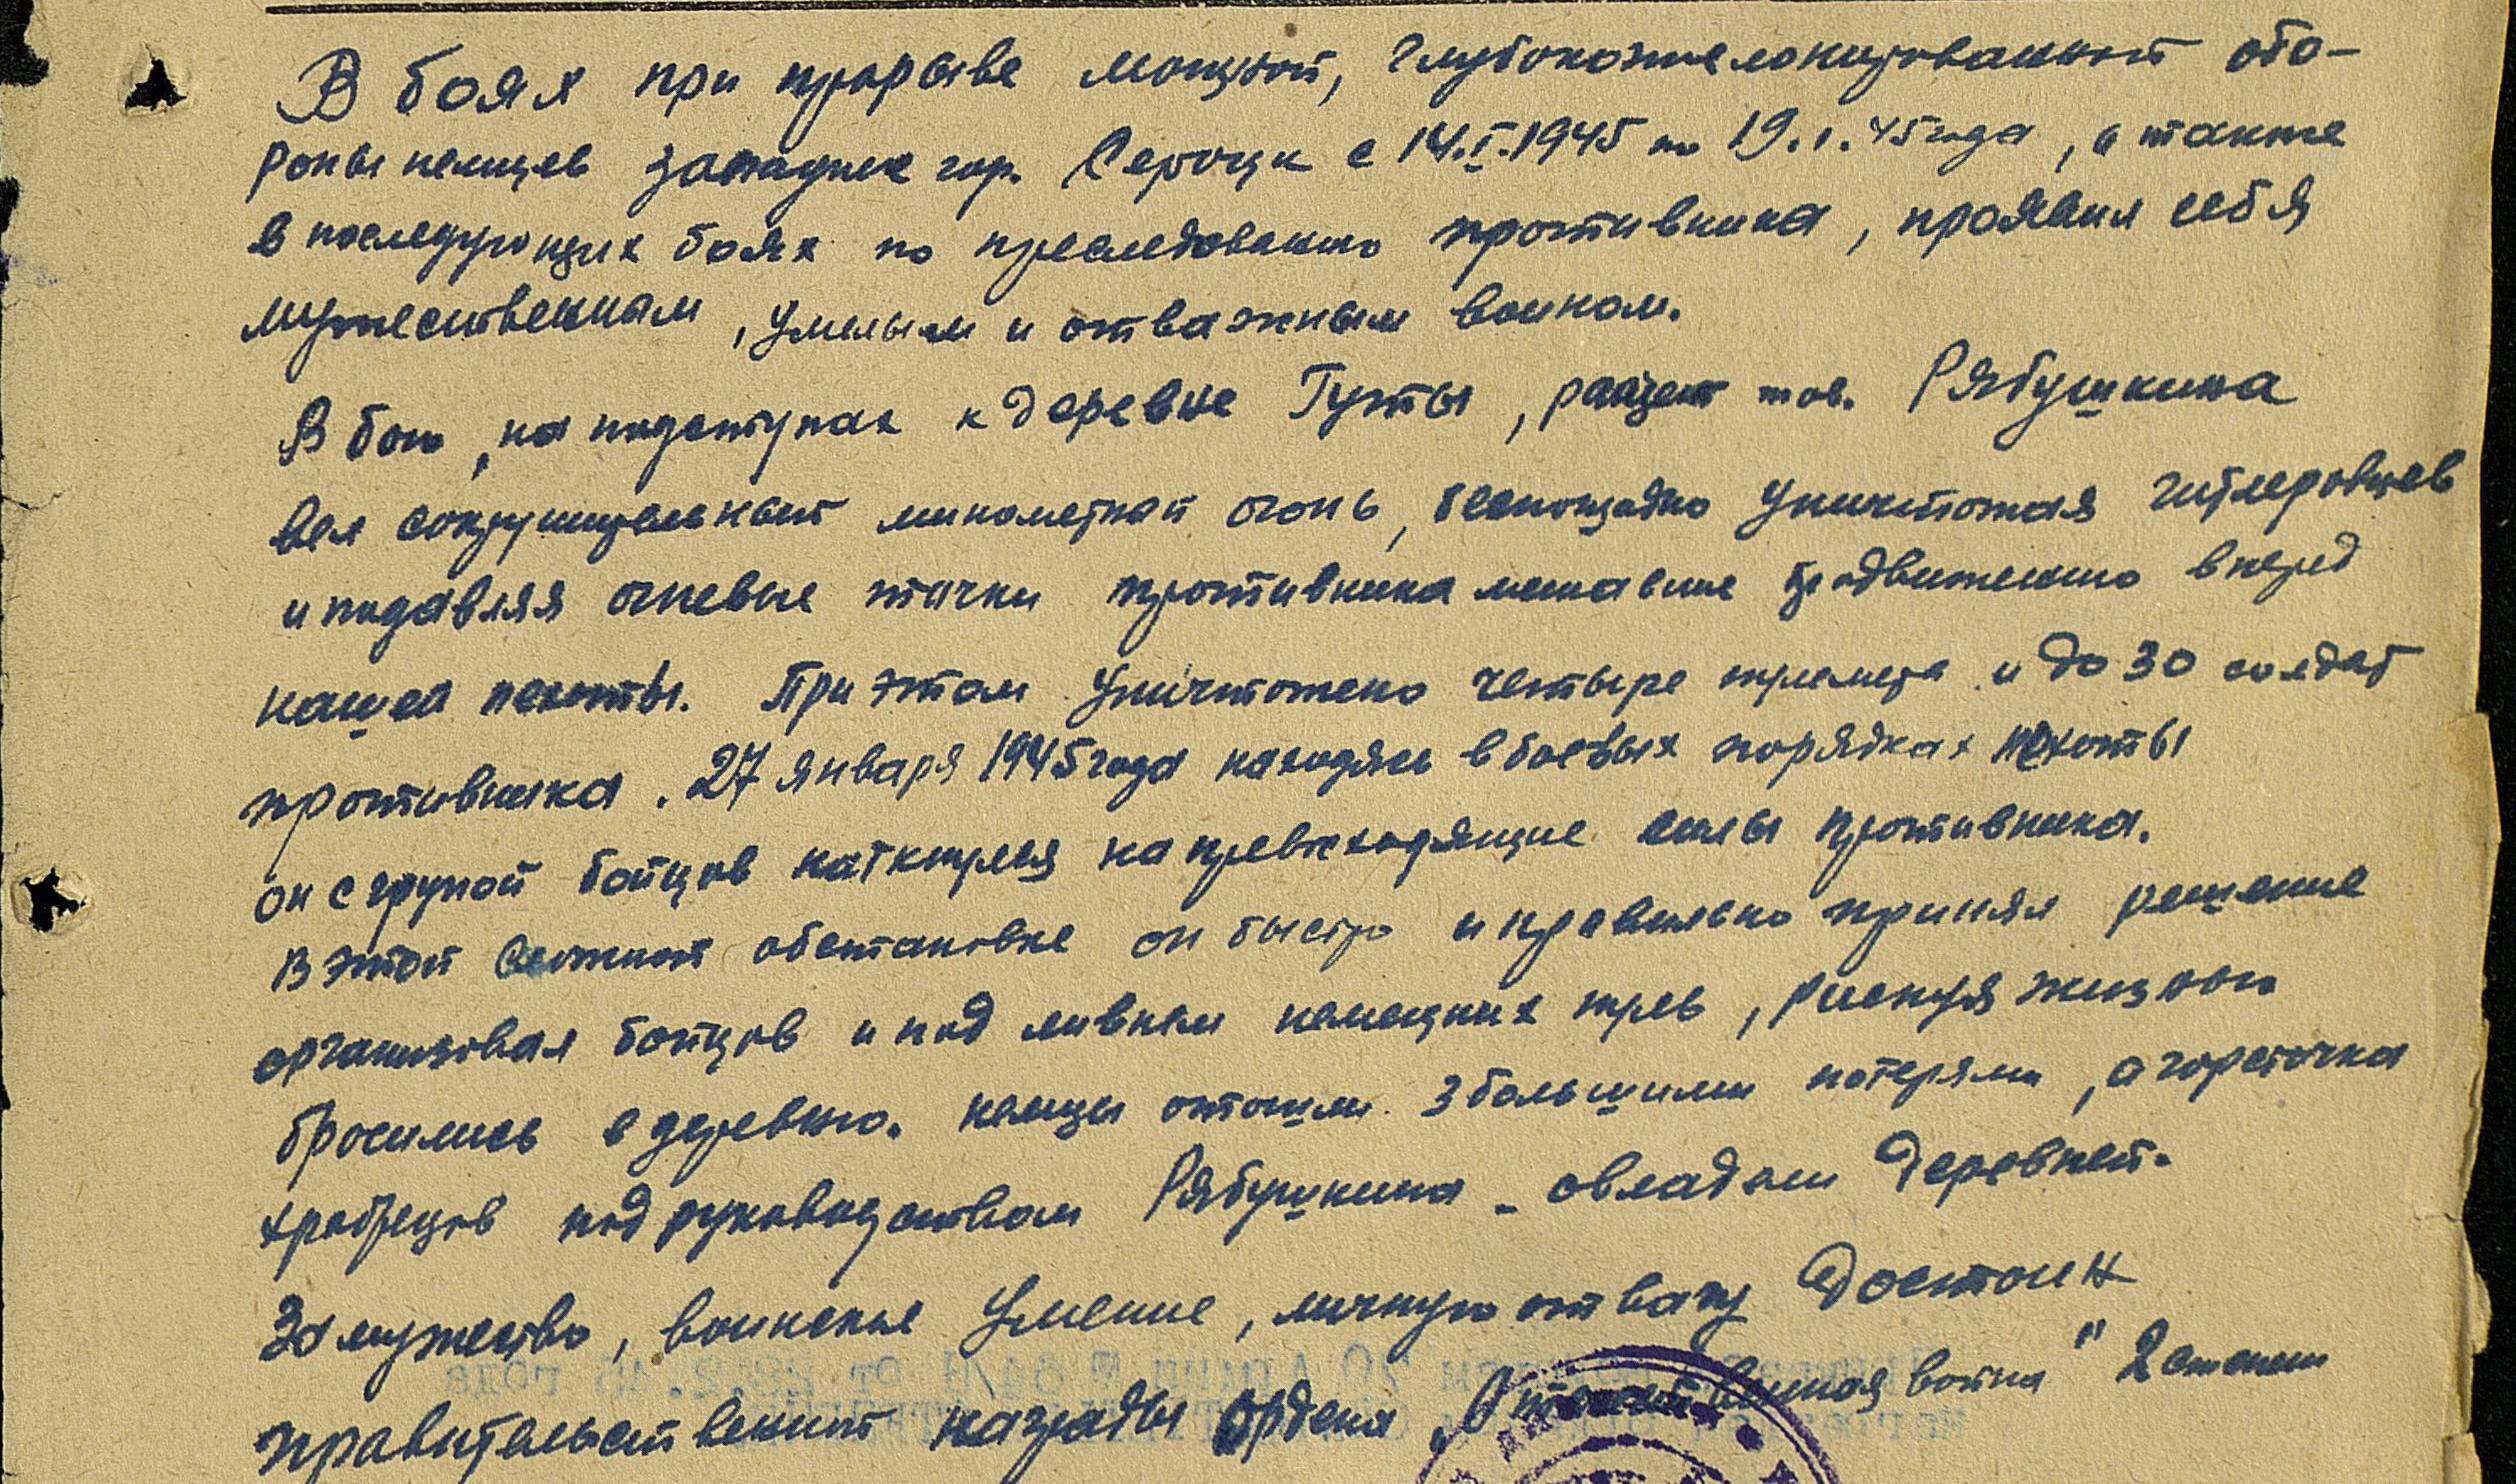 В боях при прорыве мощной, глубокоэшелонированной обо-
роны немцев западнее гор. Сероцк с 14.I.1945 по 19.1.45 года, а также
в последующих боях по преследованию противника, проявил себя
мужественным, умелым и отважным воином.
В бою, на подступах к деревне Гуты, расчет тов. Рябушкина
вел сокрушительный минометной огонь, беспощадно уничтожая гитлеровцев
и подавляя огневые точки противника мешавшие продвижению вперед
нашей пехоты. При этом уничтожено четыре пулемета и до 30 солдат
противника. 27 января 1945 года находясь в боевых порядках пехоты
он с групой бойцов наткнулся на превосходящие силы противника.
В этой сложной обстановке он быстро и правильно принял решение
организовал бойцов и под ливнем немецких пуль, рискуя жизнью
бросились в деревню. немцы отошли з большими потерями, а горсточка
храбрецов под руководством Рябушкина - овладели деревней.
За мужество, воинское умение, личную отвагу достоин
правительственной награды ордена „Отечественная война" 2 степени